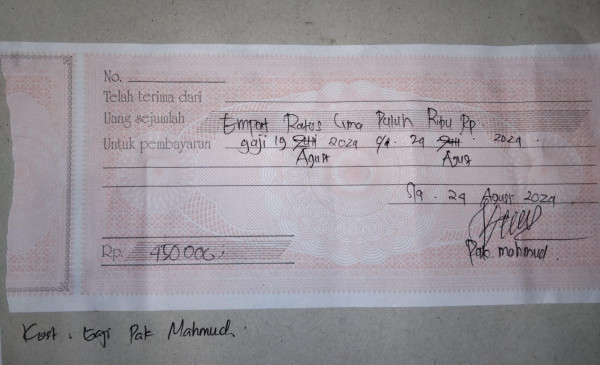 No.
Telah terima dari
Uang sejumlah Empat Ratus Lima Puluh Ribu Rp.
Untuk pembayaran gaji 19 2024 24 2024.
Agust Agus
24 Agust 2024
Rp. 450 000
Pak mahmud.
Kost. Gaji Pak Mahmud.